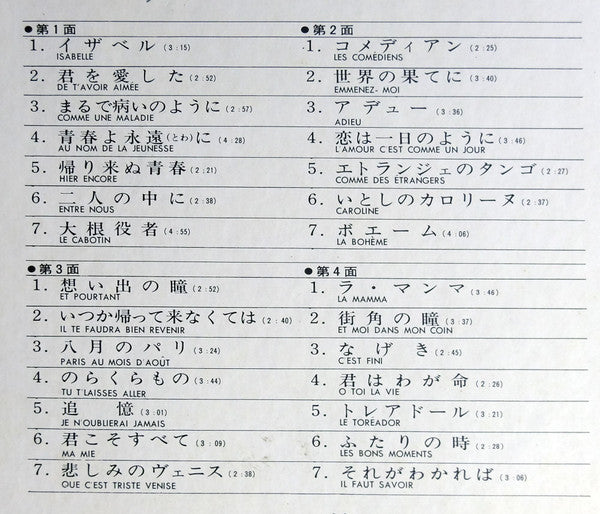 ●第1面
1. イザベル (3:15)
ISABELLE
2. 君を愛した (2:52)
DE T'AVOIR AIMÉE
3. まるで病いのように (2:57)
COMME UNE MALADIE
4. 青春よ永遠(とわ)に (4:28)
AU NOM DE LA JEUNESSE
5. 帰り来ぬ青春 (2:21)
HIER ENCORE
6. 二人の中に (2:38)
ENTRE NOUS
7. 大根役者 (4:55)
LE CABOTIN
●第2面
1. コメディアン (2:25)
LES COMÉDIENS
2. 世界の果てに (3:40)
EMMENEZ- MOI
3. アデュー (3:36)
ADIEU
4. 恋は一日のように (3:46)
L'AMOUR C'EST COMME UN JOUR
5. エトランジェのタンゴ (2:27)
COMME DES ÉTRANGERS
6. いとしのカロリーヌ (2:37)
CAROLINE
7. ボエーム (4:06)
LA BOHÈME
●第3面
1. 想い出の瞳 (2:52)
ET POURTANT
2. いつか帰って来なくては (2:40)
IL TE FAUDRA BIEN REVENIR
3. 八月のパリ (3:24)
PARIS AU MOIS D'AOÛT
4. のらくらもの (3:44)
TU T'LAISSES ALLER
5. 追憶 (3:01)
JE N'OUBLIERAI JAMAIS
6. 君こそすべて (3:09)
MA MIE
7. 悲しみのヴェニス (2:38)
QUE C'EST TRISTE VENISE
●第4面
1. ラ・マンマ (3:46)
LA MAMMA
2. 街角の瞳 (3:37)
ET MOI DANS MON COIN
3. なげき (2:45)
C'EST FINI
4. 君はわが命 (2:26)
O TOI LA VIE
5. トレアドール (3:21)
LE TOREADOR
6. ふたりの時 (2:28)
LES BONS MOMENTS
7. それがわかれば (3:06)
IL FAUT SAVOIR